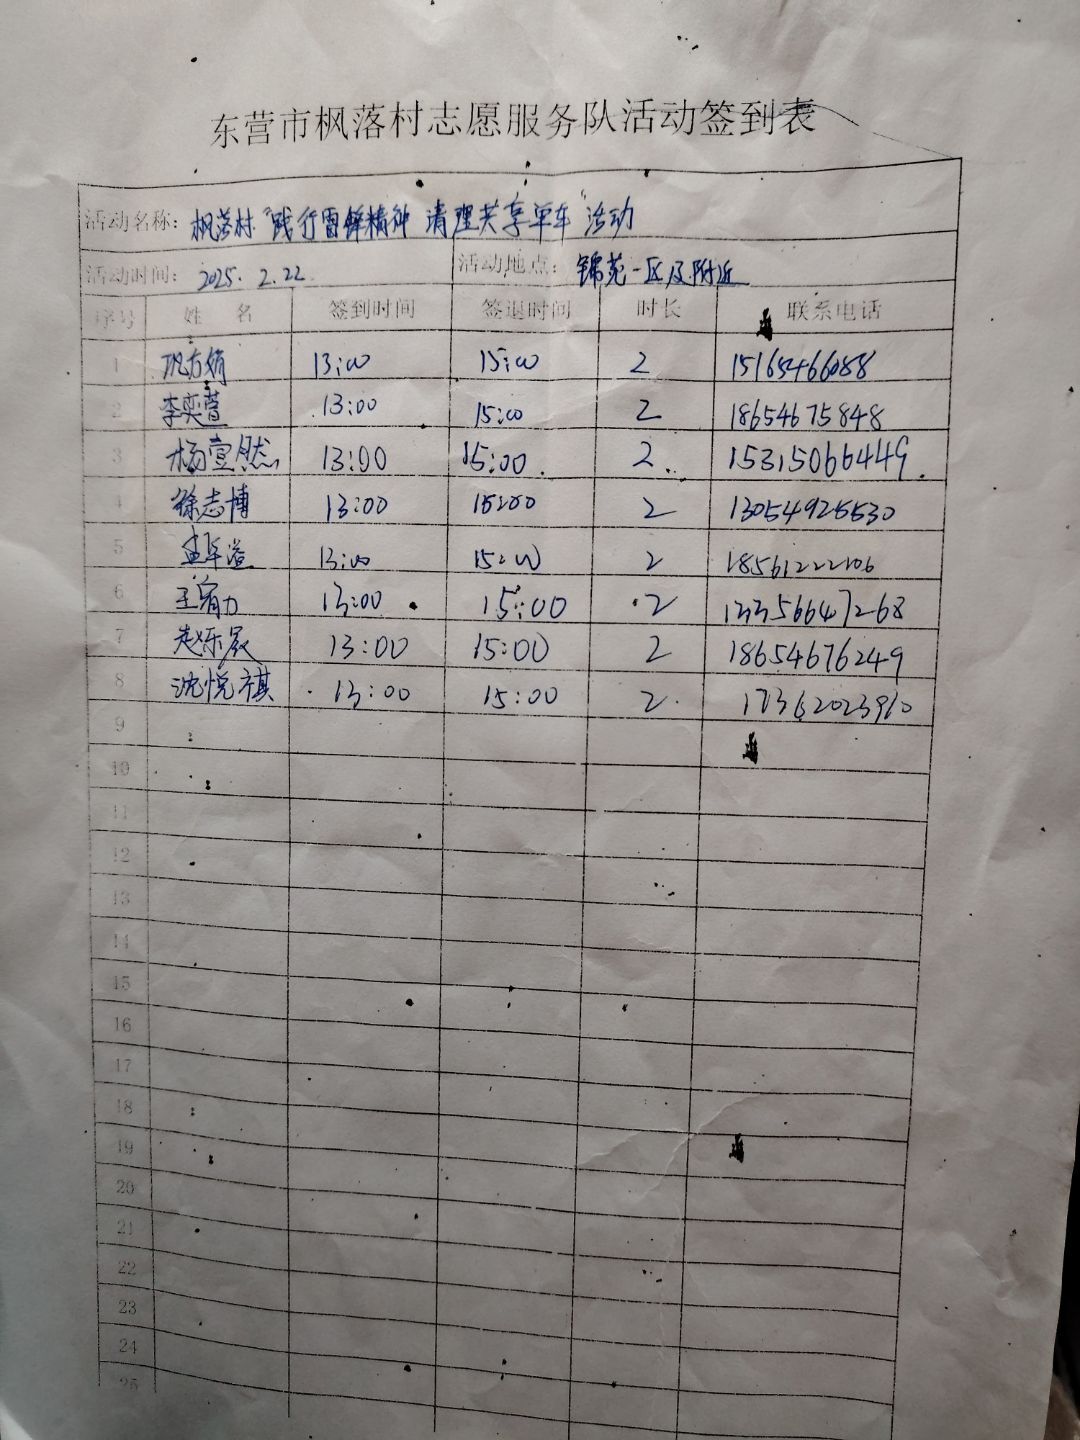 东营市枫落村志愿服务队活动签到表
活动名称：枫落村"践行雷锋精神 清理共享单车"活动
活动时间：2025.2.22 活动地点：锦苑一区及附近
序号 姓名 签到时间 签退时间 时长 联系电话
1 巩方娟 13:00 15:00 2 15165466088
2 李奕萱 13:00 15:00 2 18654675848
3 杨壹然 13:00 15:00 2 15315066449
4 徐志博 13:00 15:00 2 13054925530
5 13:00 15:00 2 18561222106
6 王宥力 13:00 15:00 2 13356647268
7 赵乐宸 13:00 15:00 2 18654676249
8 沈悦祺 13:00 15:00 2 17362023960
9
10
11
12
13
14
15
16
17
18
19
20
21
22
23
24
25